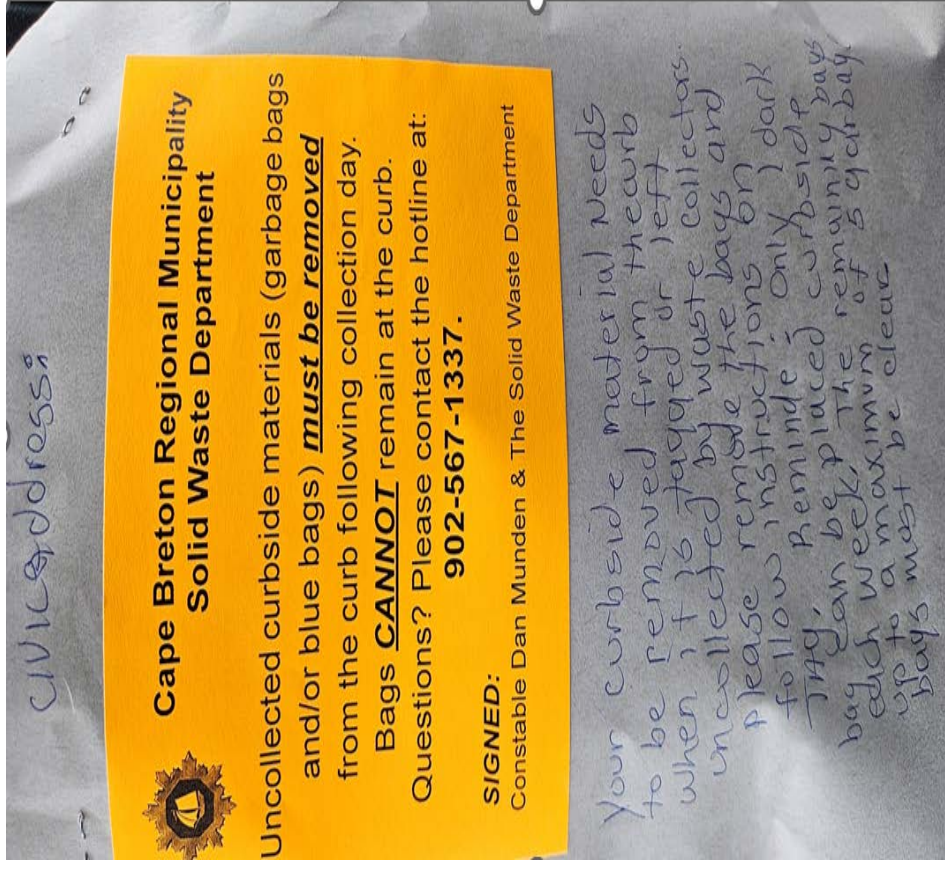 CIVIC address:
Cape Breton Regional Municipality
Solid Waste Department
Uncollected curbside materials (garbage bags
and/or blue bags) must be removed
from the curb following collection day.
Bags CANNOT remain at the curb.
Questions? Please contact the hotline at:
902-567-1337.
SIGNED:
Constable Dan Munden & The Solid Waste Department
Your curbside material needs
to be removed from the curb
when it is tagged or left
uncollected by waste collectors.
please remove the bags and
follow instructions on
Tag, Reminde: only 1 dark
bag can be placed curbside
each week, The remaining bags
up to a maximum of 5 garbag
bags must be clear